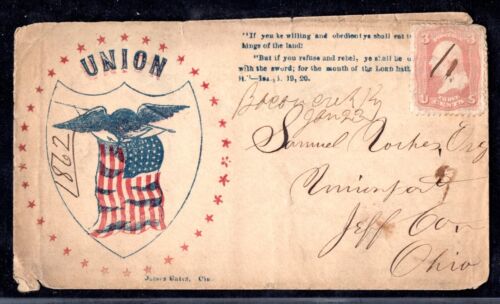 UNION
"If you be willing and obedient ye shall eat t
hings of the land:
"But if you refuse and rebel, ye shall be d
with the sword; for the month of the LORD hath
it."—Isa. i. 19, 20.
3 3
THREE CENTS
Jan 23
1862
Samuel Esq
Unionport
Jeff Con
Ohio
James Gates, Cin